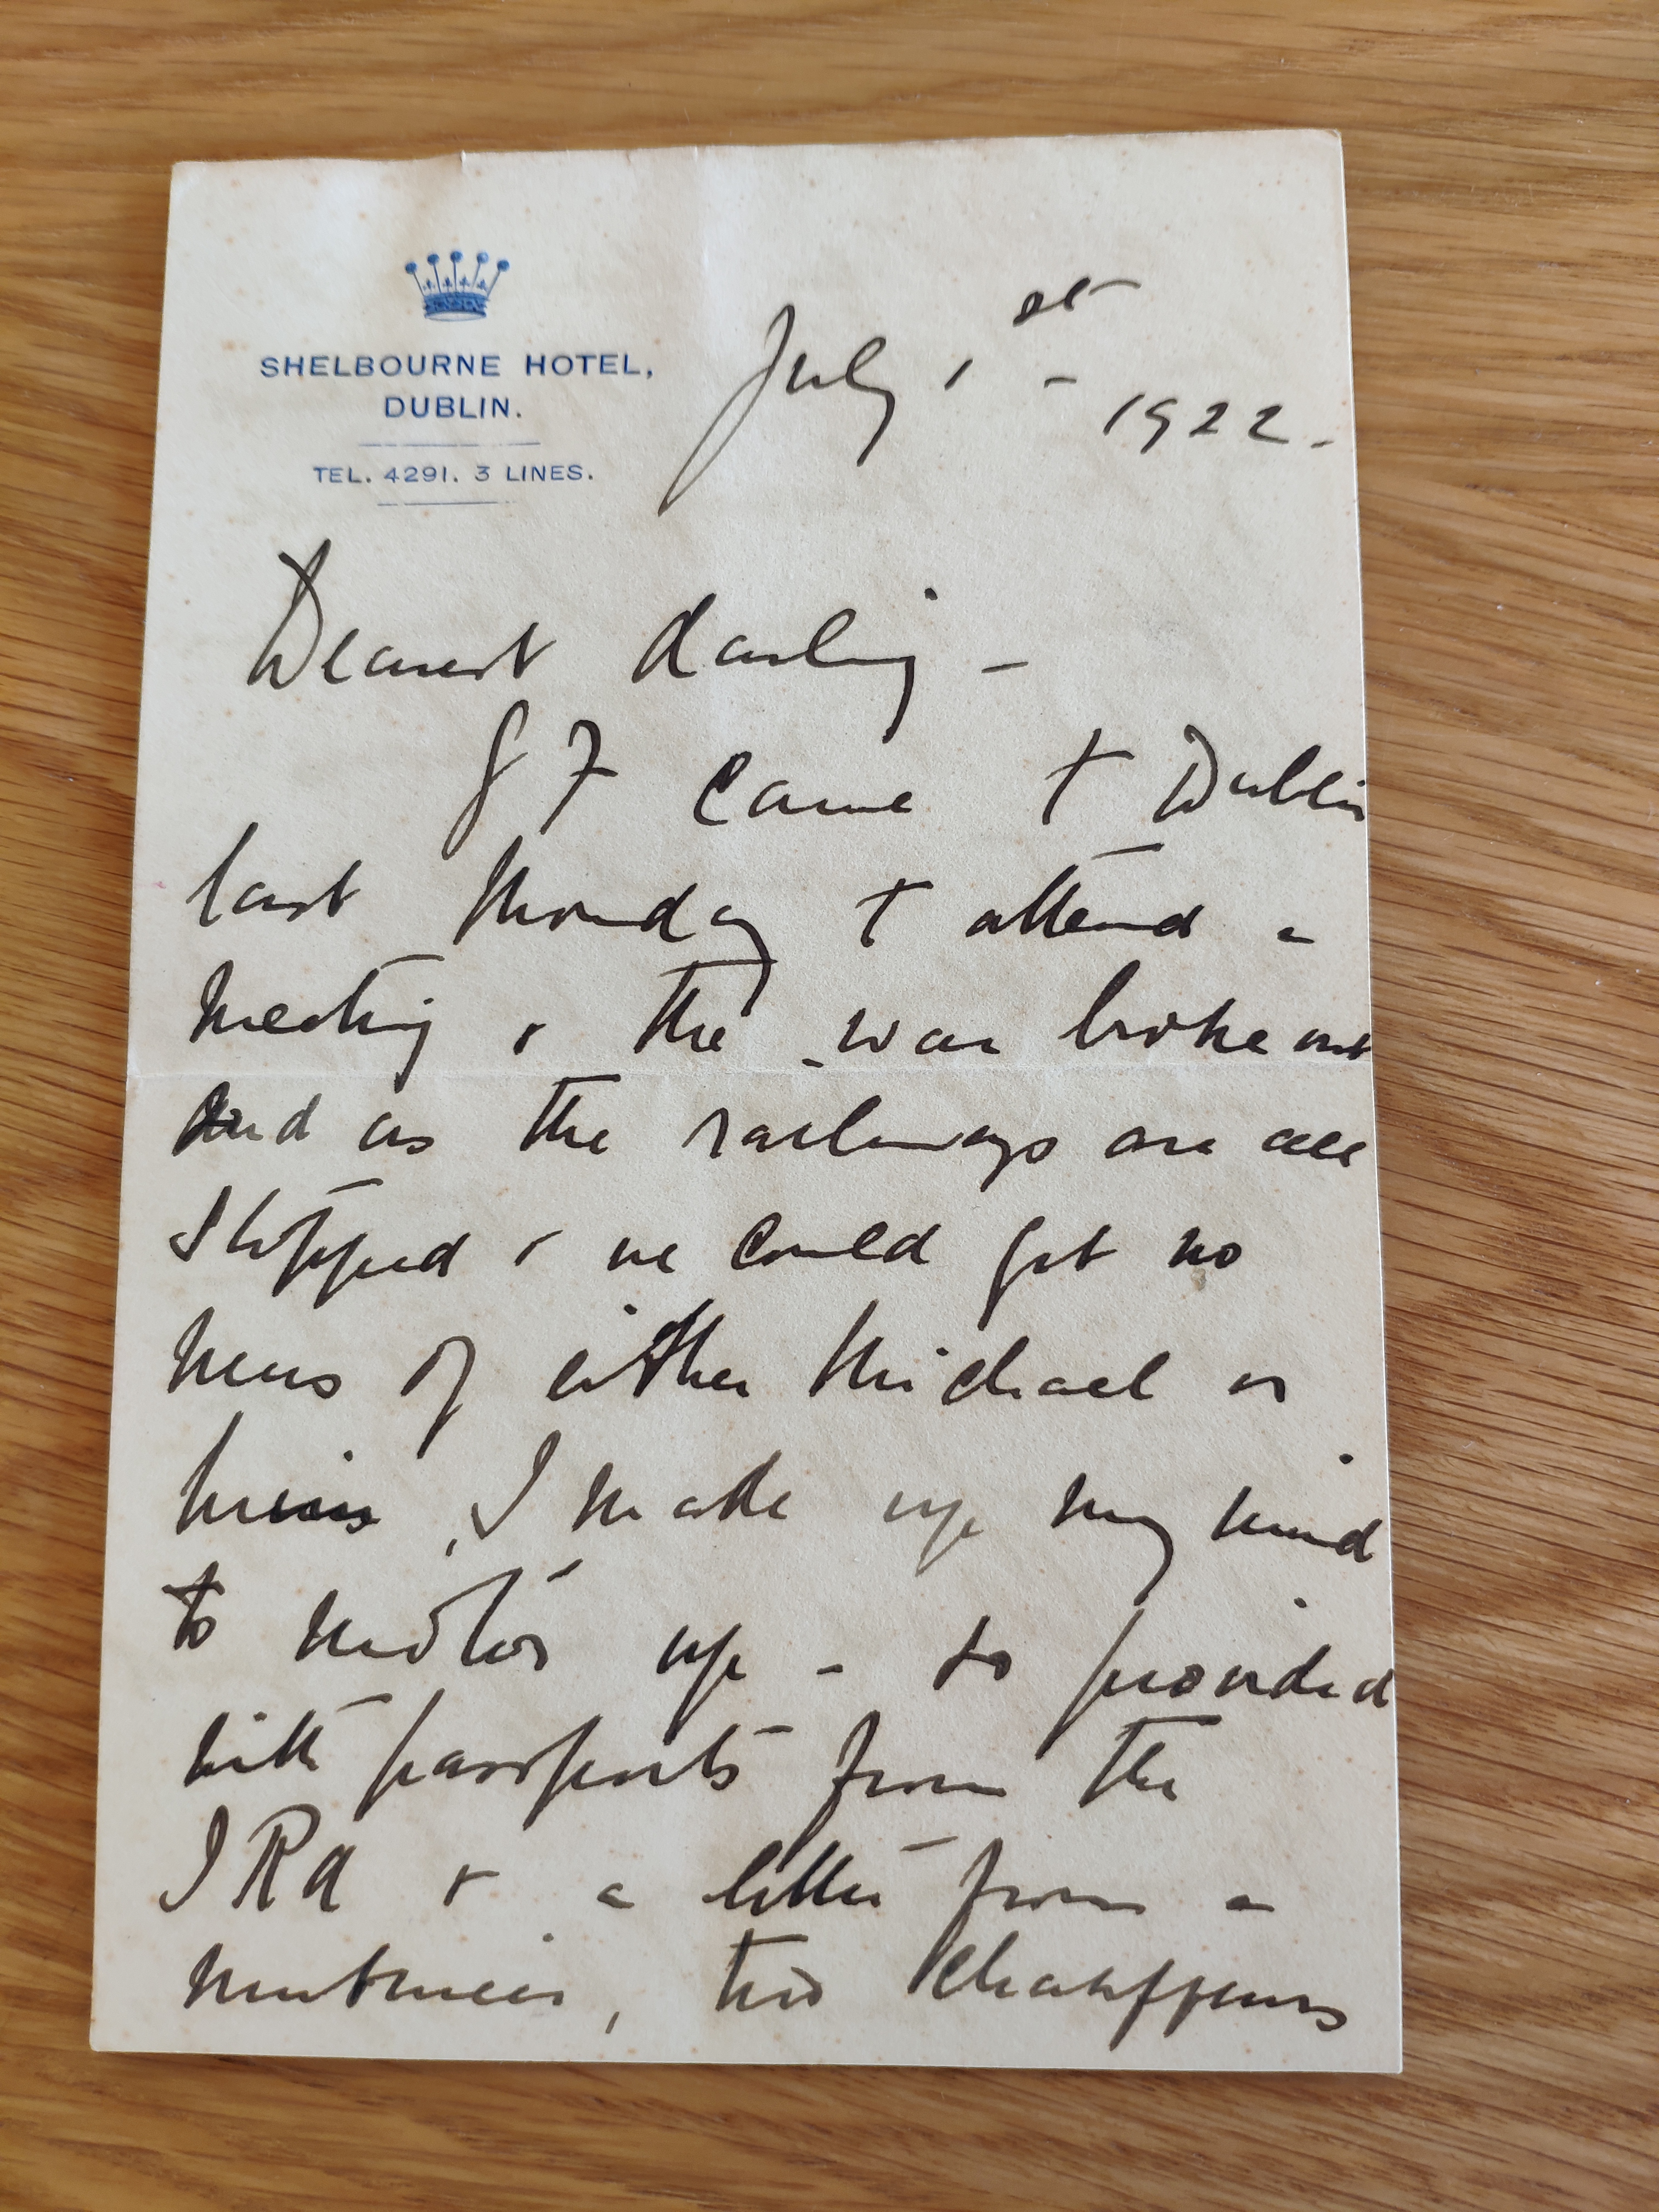 SHELBOURNE HOTEL,
DUBLIN.
TEL. 4291. 3 LINES.
July 1st - 1922.
Dearest darling -
came to Dublin
last Monday to attend a
meeting & the war broke out
and as the railways are all
stopped & we could get no
news of either Michael or
, I made up my mind
to motor up - so provided
with passports from the
IRA & a letter from a
, two chauffeurs